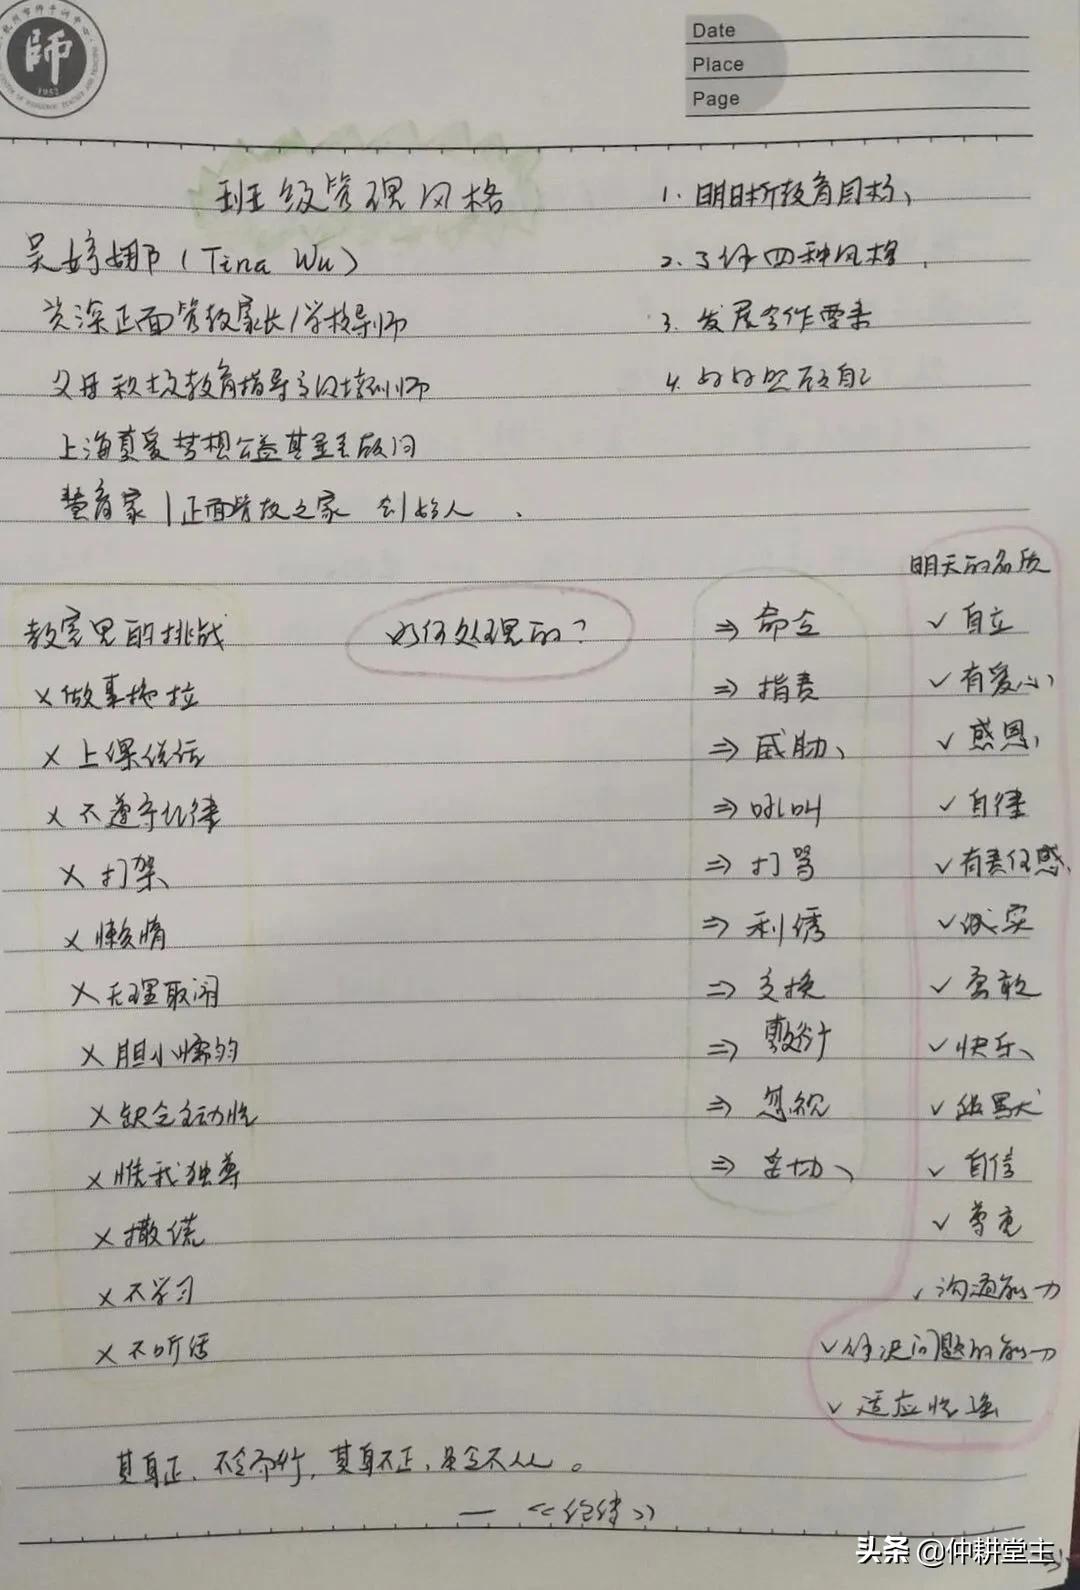 师
1952
Date
Place
Page
班级管理风格
吴婷娜(Tina Wu)
资深正面管教家长/学校导师
父母积极教育指导培训师
上海真爱梦想公益基金会顾问
慧育家|正面管教之家 创始人
1. 明晰教育目标、
2. 了解四种风格
3. 发展合作要素
4. 好好照顾自己
教室里的挑战
× 做事拖拉
× 上课说话
× 不遵守纪律
× 打架、
× 懒惰
× 无理取闹
× 胆小懦弱
× 缺乏主动性
× 惟我独尊
× 撒谎
× 不学习
× 不听话
如何处理的?
⇒ 命令
⇒ 指责
⇒ 威胁、
⇒ 吼叫
⇒ 打骂
⇒ 利诱
⇒ 交换
⇒ 敷衍
⇒ 忽视
⇒
明天的名质
✓ 自立
✓ 有爱心
✓ 感恩、
✓ 自律
✓ 有责任感、
✓ 诚实
✓ 勇敢
✓ 快乐、
✓ 幽默
✓ 自信
✓ 尊重
✓ 沟通能力
✓ 解决问题的能力
✓ 适应性强
其身正、不令而行,其身不正,虽令不从。
—《论语》
头条 @仲耕堂主